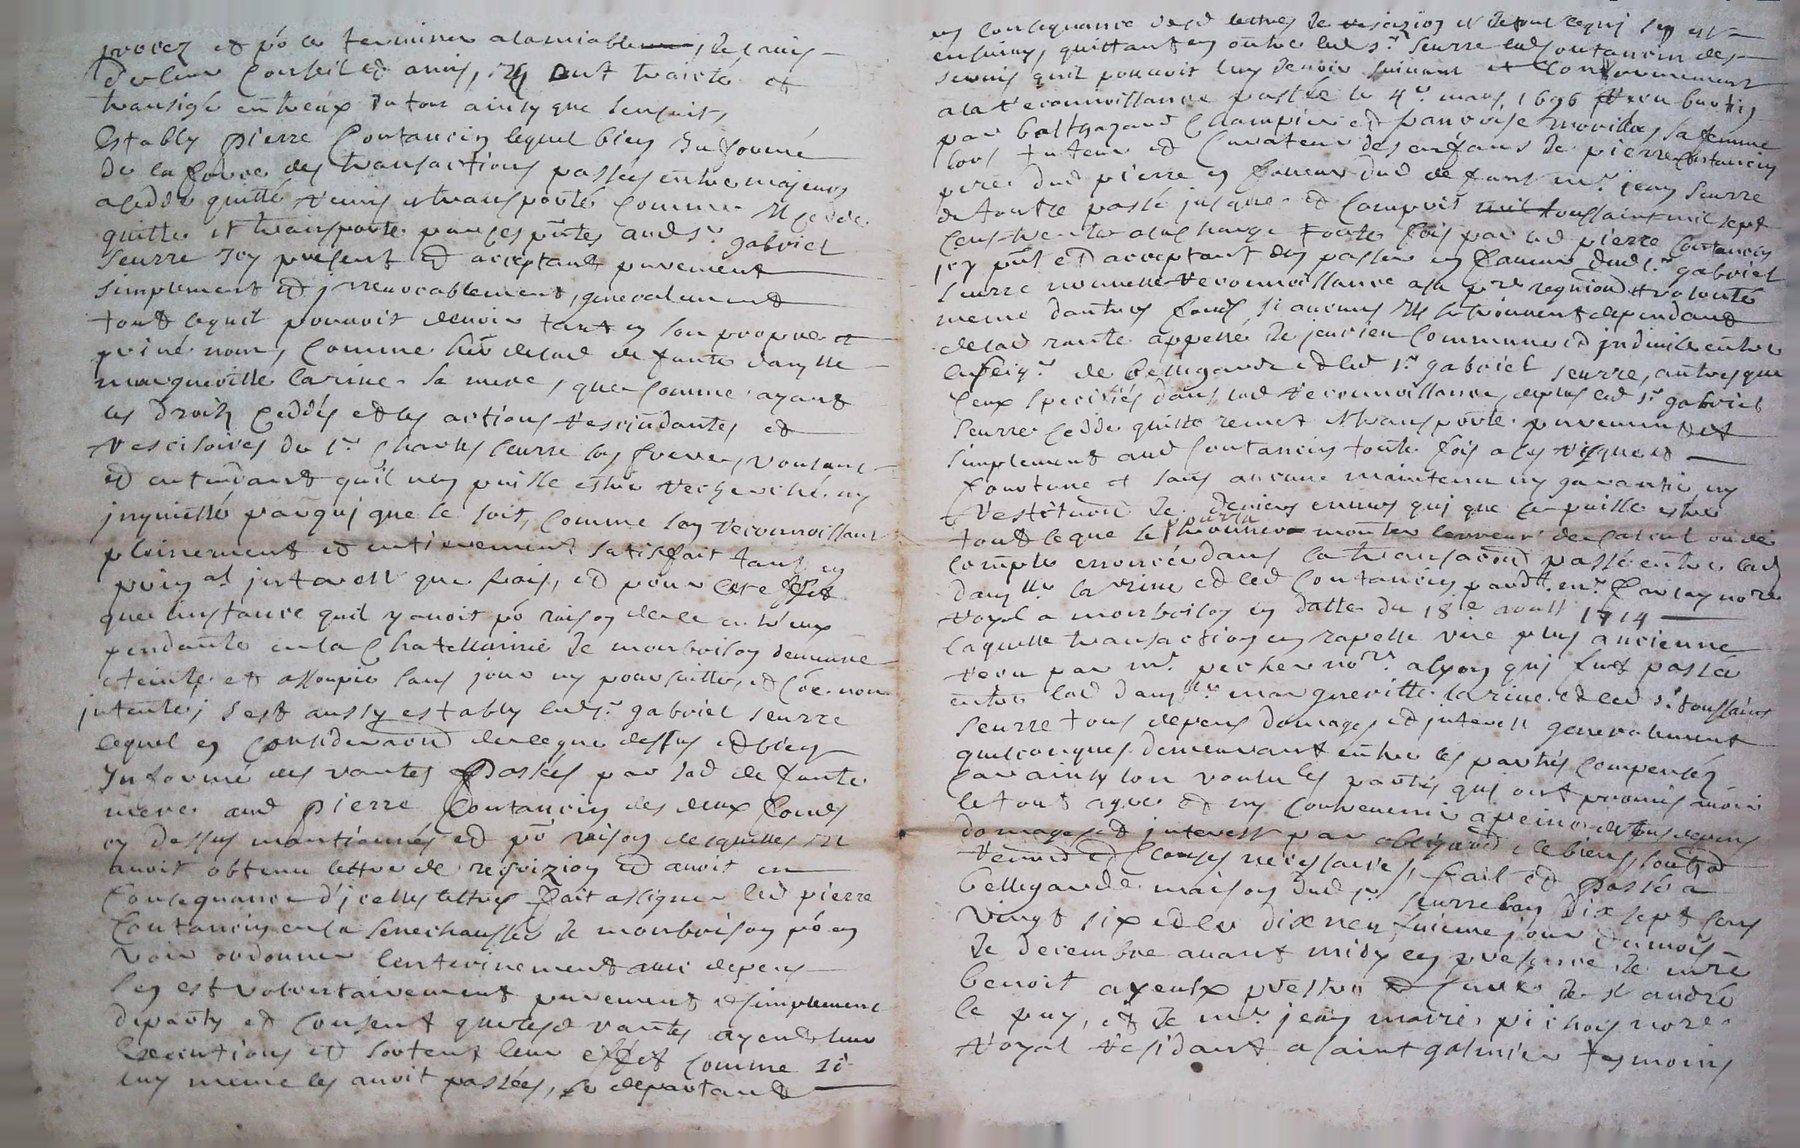 procez et po ce terminer alamiable, de lauis
de leur Conseil et amis, ilz ont traicté et
transigé entreux du tout ainsy que sensuit,
Estably pierre Coutancin lequel bien Informé
de la force des transactions passees entre majeurs
a ceddé quitté remis et transporté comme Il cedde
quitte et transporte par ces pntes aud sr. gabriel
Seurre Icy present et acceptant purement
simplement et jrreuocablement, generalement
tout ce quil pouuoit deuoir tant en son propre et
priué nom, comme hér de lad defunte damlle
margueritte larine sa mere, que comme ayant
les droitz ceddés et les actions rescindantes et
rescisoires du sr. Charles seurre son frere, voulant
et entendant quil nen puisse estre recherché ny
jnquietté par quj que ce soit, comme sen reconnoissant
plainement et entierement satisfait tant en
prinal jnterest que frais, et pour cest effet
que linstance quil y auoit po raison de ce entreux
pendante en la Chatellainie de monbrison demeure
eteinte et assoupie sans jour ny poursuitte, et
jntente, sest aussy estably led sr. gabriel seurre
lequel en consideraon de ce que dessus et bien
Informé des vantes Passées par lad defunte
mere aud Pierre Coutancin des deux fonds
cy dessus mantionnés et po raison desquelles Il
auoit obtenu lettre de resizion et auoit en
Consequance d'jcelles lettres fait assigner led pierre
Coutancin en la senechaussée de monbrison po en
voir ordonner lenterinement auec depens
sen est volontairement purement et simplement
departy et consent que lesd vantes ayent leur
executions et sortent leur effet comme si
luy meme les auoit passées, se departant
en Consequance desd lettres de resizion et de tout ce quj sen est
ensuiuy, quittant en outre led sr. seurre led Coutancin des
seruis quil pouuoit luy deuoir suiuant et conformement
a la reconnoissance passée le 4e. mars 1696
par balthazard Champier et francoise sa femme
lors tuteur et Curateur des enfans de pierre Coutancin
pere dud pierre en faueur dud defunt mr. jean seurre
de tout le passé jusques et compris toussaint mil sept
cens a la charge toute fois par led pierre Coutancin
jcy pnt et acceptant den passer en faueur dud sr. gabriel
seurre nouuelle reconnoissance a sa pre. requisition et volonté
meme dautres fonds si aucuns Il se treuuent dependans
de lad rante appellé de jeurieu commune et jndiuise entre
le seigr. de bellegarde et led sr. gabriel seurre, autres que
ceux specifiés dans lad reconnoissance, deplus led sr. gabriel
seurre cedde quitte remet et transporte purement et
simplement aud Coutancin toute fois a ses risques et
fourtune et sans aucune maintenue ny garantie ny
restituon de deniers enuers quj que ce puisse estre
tout ce que se pourra monter lerreur de calcul ou de
compte erronée dans la transaction passé entre lad
damlle larine et led Coutancin pardt. mr. nore
royal a monbrison en datte du 18e aoust 1714
laquelle transaction en rapelle vne plus ancienne
receu par mr. pecher nore. a lyon quj fut passée
entre lad damlle margueritte larine et led sr. toussaint
seurre tous depens domages et jnterest generalement
quelconques demeurant entre les partiés compensés
Car ainsy lon voulu les parties quj ont promis auoir
le tout agree et ny contreuenir a peine de tous depens
domages et jnterest par obligaon de biens, soubz
renon et clauses necessaires, fait et Passé a
bellegarde maison dud sr. seurre lan dix sept cens
vingt six et le dix neufuieme jour du mois
de decembre auant midy en presence de mre
benoit ayeulx prestre et curé de st andré
le puy, et de mr. jean marie pichon nore.
royal residant a saint galmier tesmoins